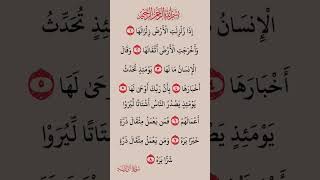 بِسْمِ اللَّهِ الرَّحْمَٰنِ الرَّحِيمِ
إِذَا زُلْزِلَتِ الْأَرْضُ زِلْزَالَهَا ١
وَأَخْرَجَتِ الْأَرْضُ أَثْقَالَهَا ٢ وَقَالَ
الْإِنسَانُ مَا لَهَا ٣ يَوْمَئِذٍ تُحَدِّثُ
أَخْبَارَهَا ٤ بِأَنَّ رَبَّكَ أَوْحَىٰ لَهَا ٥
يَوْمَئِذٍ يَصْدُرُ النَّاسُ أَشْتَاتًا لِّيُرَوْا
أَعْمَالَهُمْ ٦ فَمَن يَعْمَلْ مِثْقَالَ ذَرَّةٍ
خَيْرًا يَرَهُ ٧ وَمَن يَعْمَلْ مِثْقَالَ ذَرَّةٍ
شَرًّا يَرَهُ ٨
سورة الزلزلة